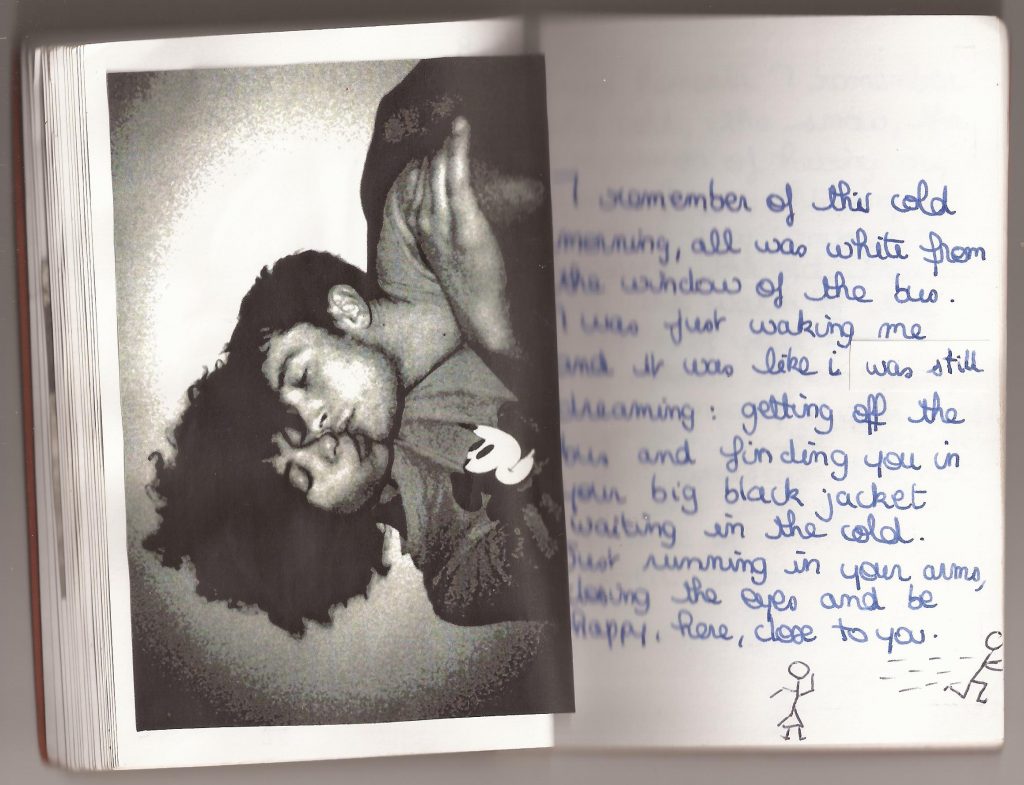 I remember of this cold
morning, all was white from
the window of the bus.
I was just waking me
and it was like i was still
dreaming : getting off the
bus and finding you in
your big black jacket
waiting in the cold.
Just running in your arms,
closing the eyes and be
happy, here, close to you.